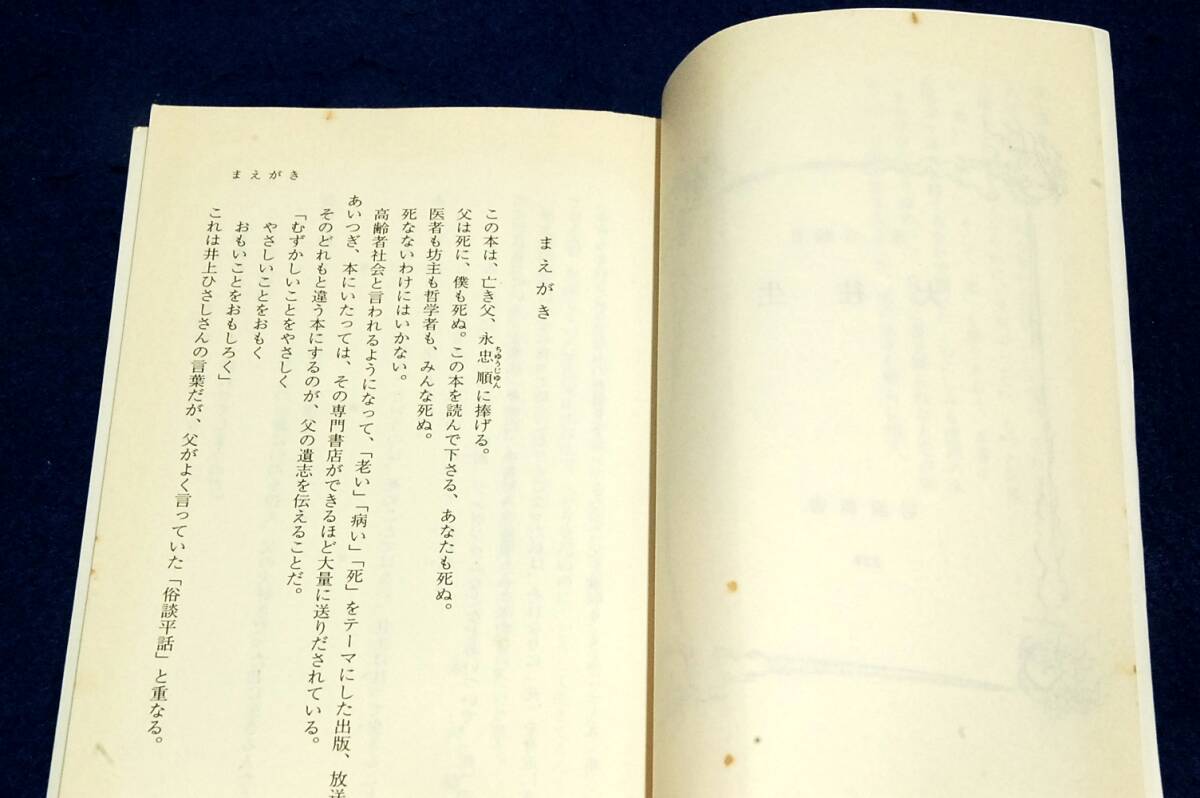 まえがき
まえがき
この本は、亡き父、永忠順に捧げる。
ちゆうじゆん
父は死に、僕も死ぬ。この本を読んで下さる、あなたも死ぬ。
医者も坊主も哲学者も、みんな死ぬ。
死なないわけにはいかない。
高齢者社会と言われるようになって、「老い」「病い」「死」をテーマにした出版、放送
あいつぎ、本にいたっては、その専門書店ができるほど大量に送りだされている。
そのどれもと違う本にするのが、父の遺志を伝えることだ。
「むずかしいことをやさしく
やさしいことをおもく
おもいことをおもしろく」
これは井上ひさしさんの言葉だが、父がよく言っていた「俗談平話」と重なる。